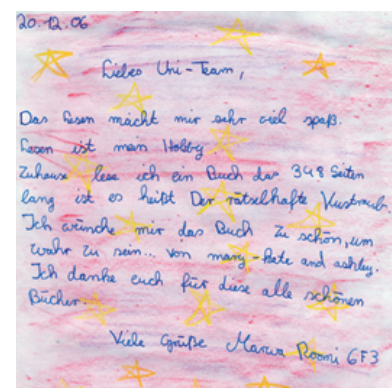 20.12.06
Liebes Uni-Team,
Das Lesen macht mir sehr viel spaß.
Lesen ist man Hobby.
Zuhause lese ich ein Buch das 348 Seiten
lang ist es heißt Der rätselhafte Kustraub
Ich wünche mir das Buch Zu schön, um
wahr zu sein... von mary-kate and ashley.
Ich danke euch für diese alle schönen
Bücher.
Viele Grüße Marwa Roomi 6F3